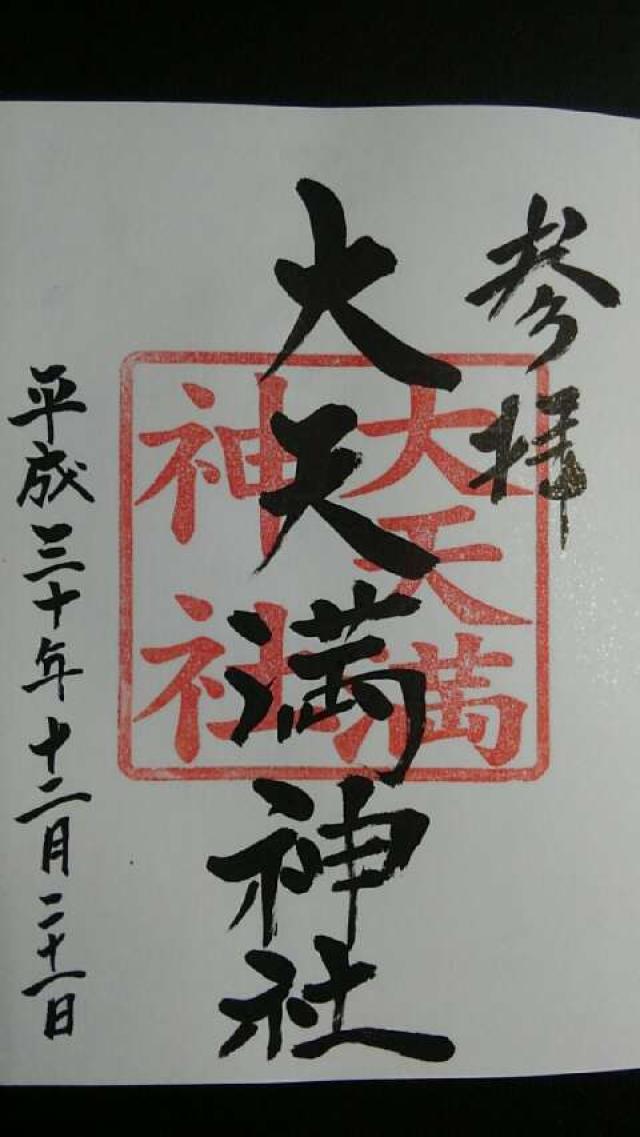 参拝
大天満神社
大天満
神社
平成三十年十二月二十一日